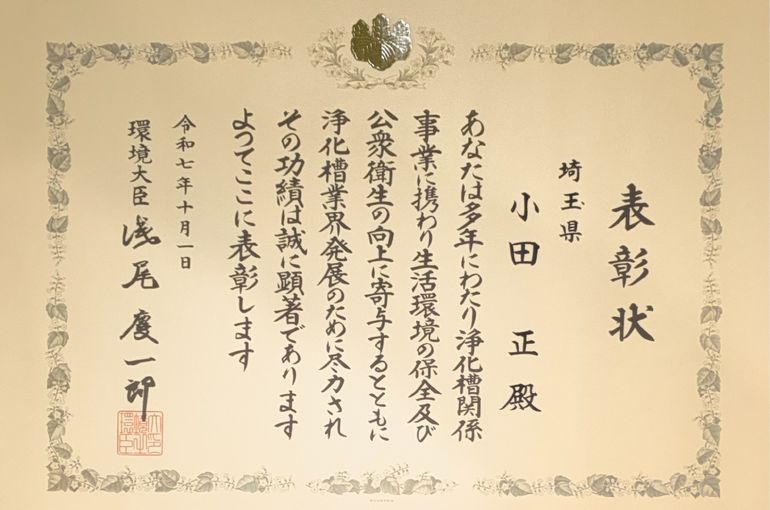 表彰状
埼玉県
小田 正 殿
あなたは多年にわたり浄化槽関係
事業に携わり生活環境の保全及び
公衆衛生の向上に寄与するとともに
浄化槽業界発展のために尽力され
その功績は誠に顕著であります
よつてここに表彰します
令和七年十月一日
環境大臣 浅尾慶一郎